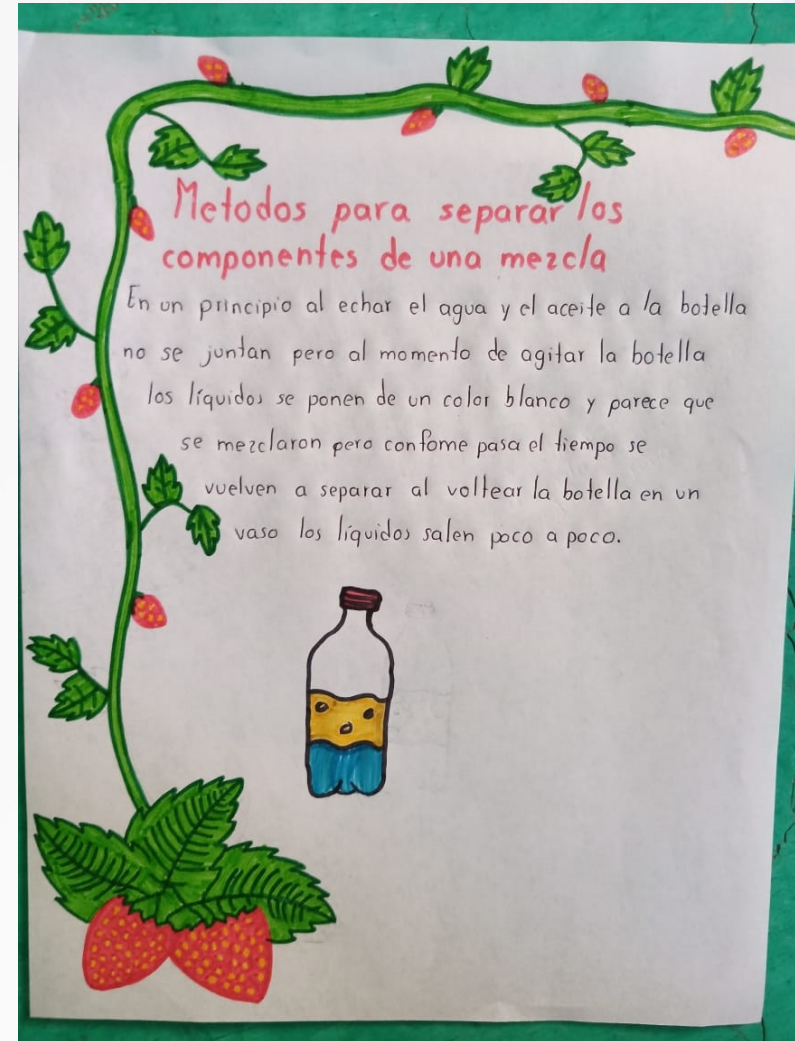 Metodos para separar los
componentes de una mezcla
En un principio al echar el agua y el aceite a la botella
no se juntan pero al momento de agitar la botella
los líquidos se ponen de un color blanco y parece que
se mezclaron pero confome pasa el tiempo se
vuelven a separar al voltear la botella en un
vaso los líquidos salen poco a poco.